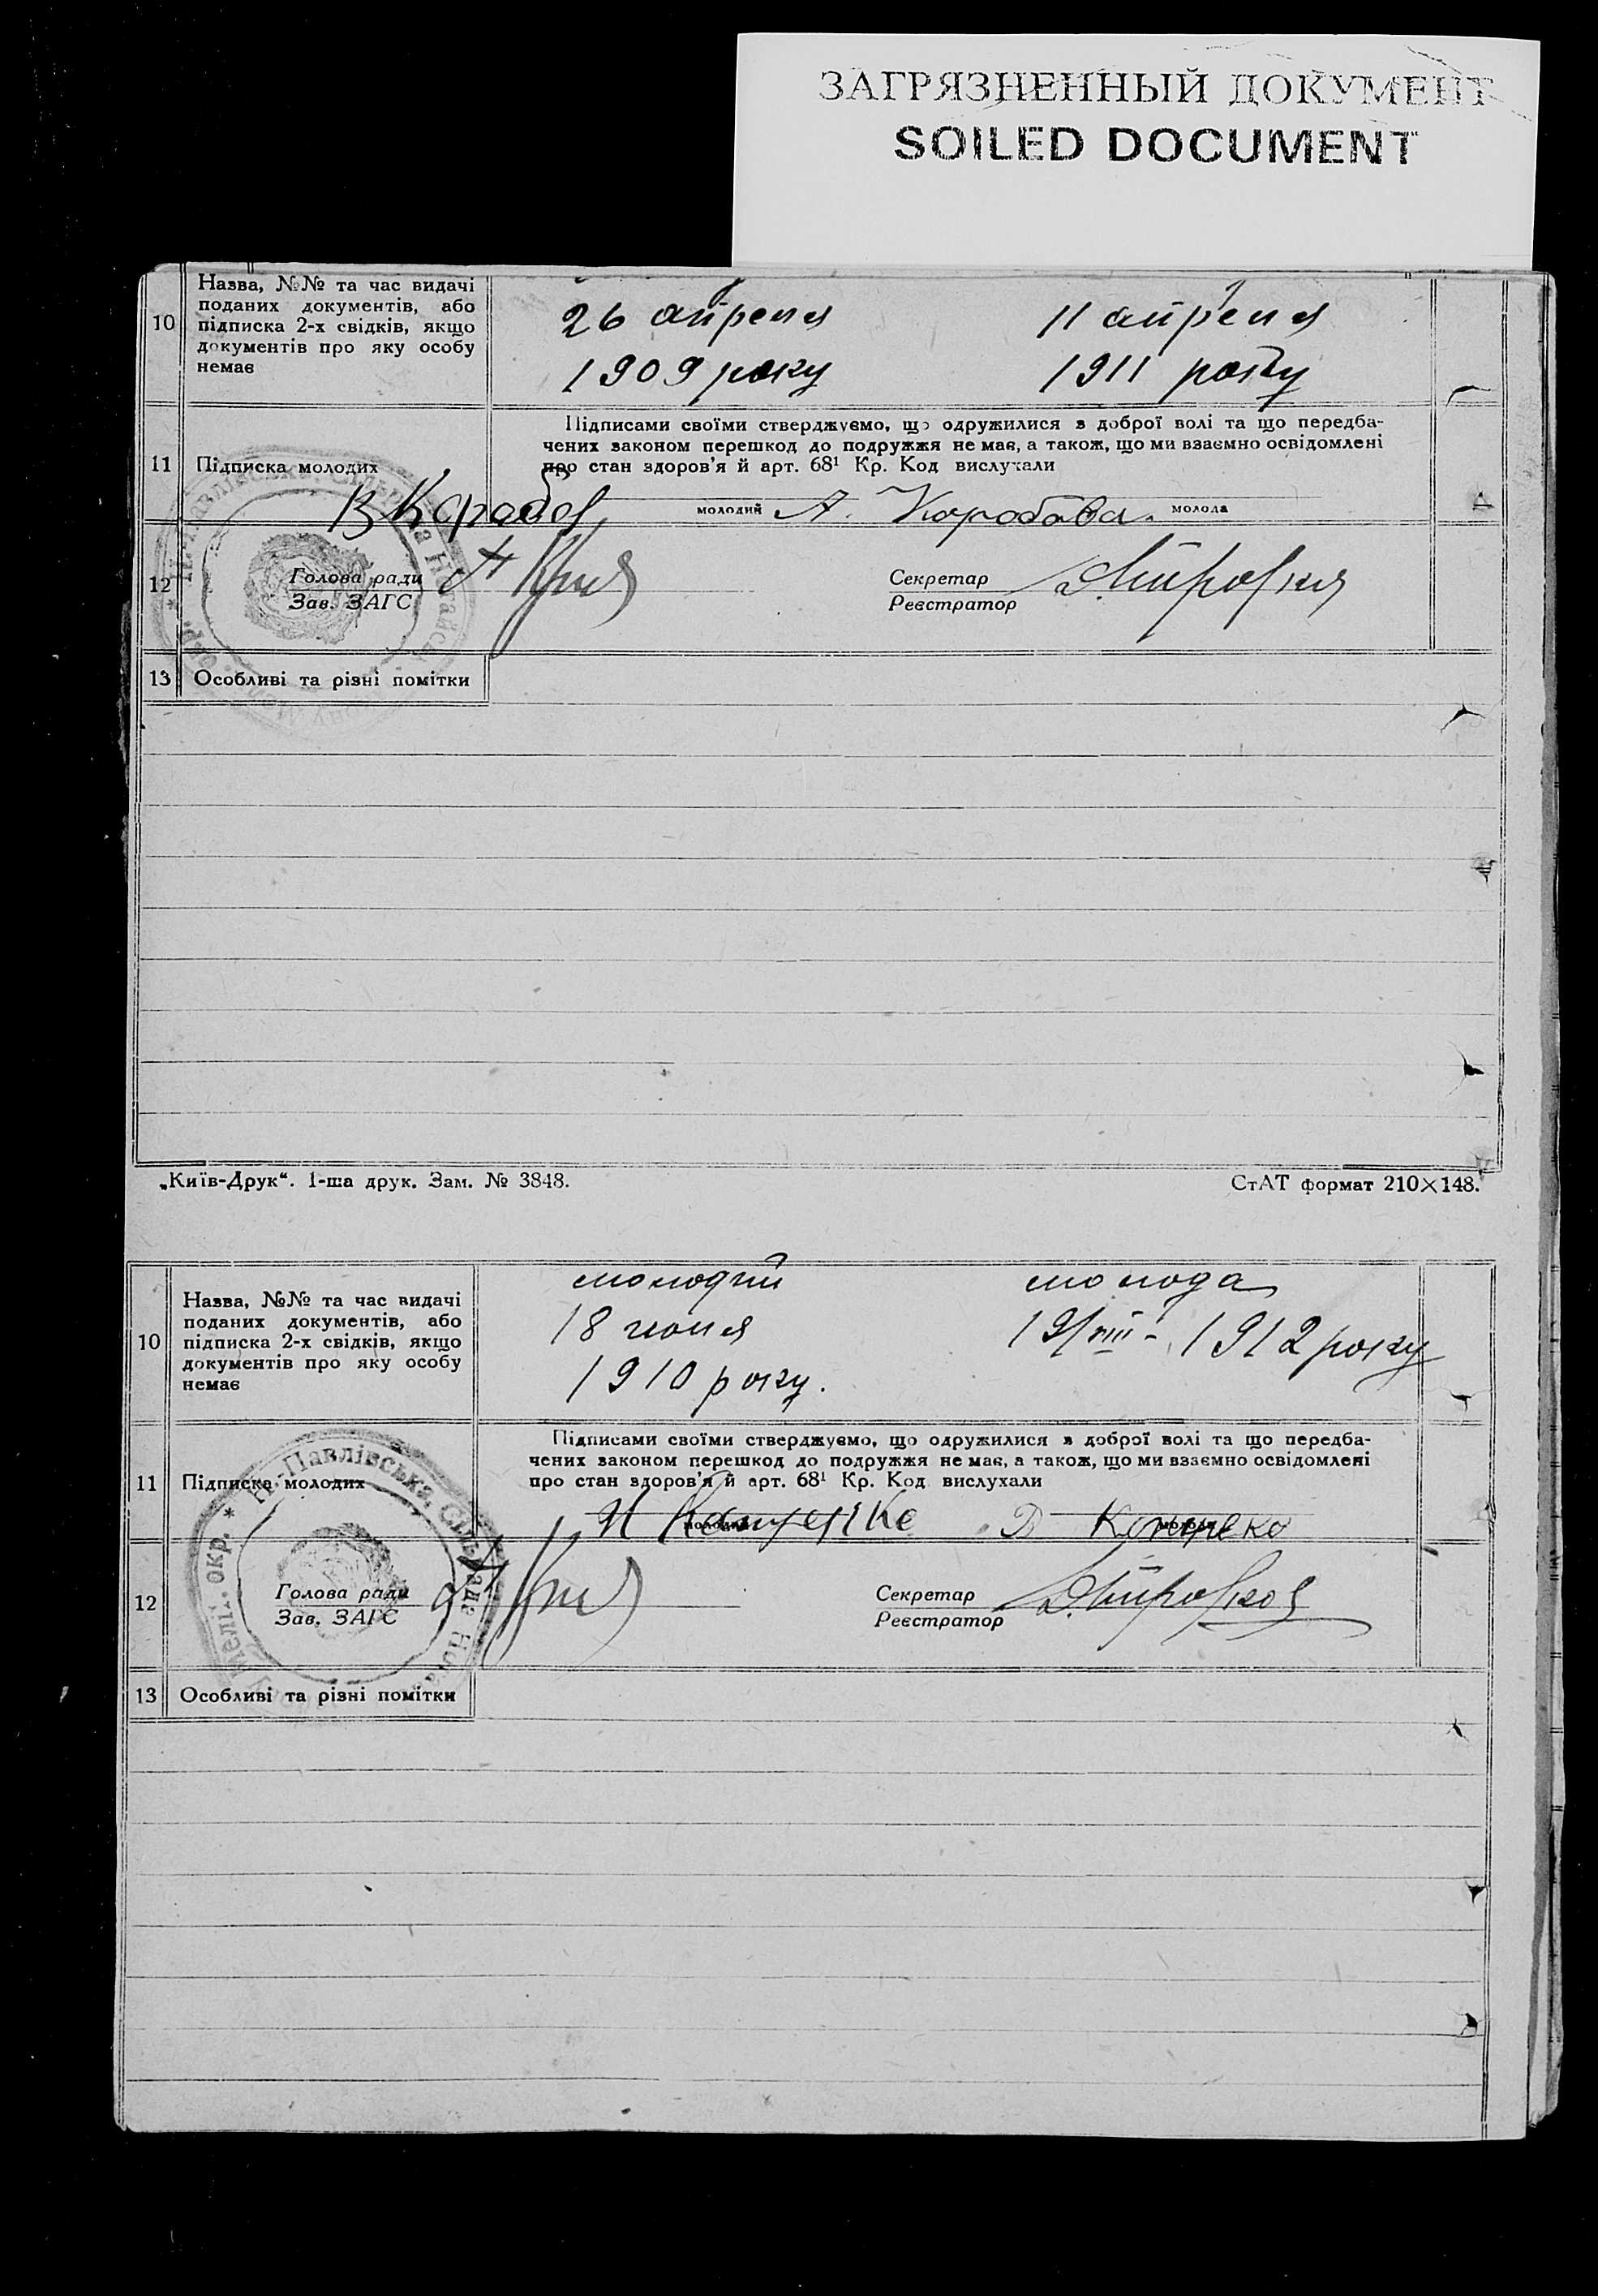 ЗАГРЯЗНЕННЫЙ ДОКУМЕНТ
SOILED DOCUMENT
10
Назва, №№ та час видачі
поданих документів, або
підписка 2-х свідків, якщо
документів про яку особу
немає
26 апреля
1909 року
11 апреля
1911 року
11
Підписка молодих
Підписами своїми стверджуємо, що одружилися з доброї волі та що передба-
чених законом перешкод до подружжя не має, а також, що ми взаємно освідомлені
про стан здоров'я й арт. 68¹ Кр. Код вислухали
В Коробов молодий А. Коробова. молода
12
Голова ради
Зав. ЗАГС
Секретар
Реєстратор
13
Особливі та різні помітки
„Київ-Друк“. 1-ша друк. Зам. № 3848.
СтАТ формат 210×148.
10
Назва, №№ та час видачі
поданих документів, або
підписка 2-х свідків, якщо
документів про яку особу
немає
молодий
18 июня
1910 року.
молода
19/VIII - 1912 року
11
Підписка молодих
Підписами своїми стверджуємо, що одружилися з доброї волі та що передба-
чених законом перешкод до подружжя не має, а також, що ми взаємно освідомлені
про стан здоров'я й арт. 68¹ Кр. Код вислухали
молодий
молода
12
Голова ради
Зав. ЗАГС
Секретар
Реєстратор
13
Особливі та різні помітки